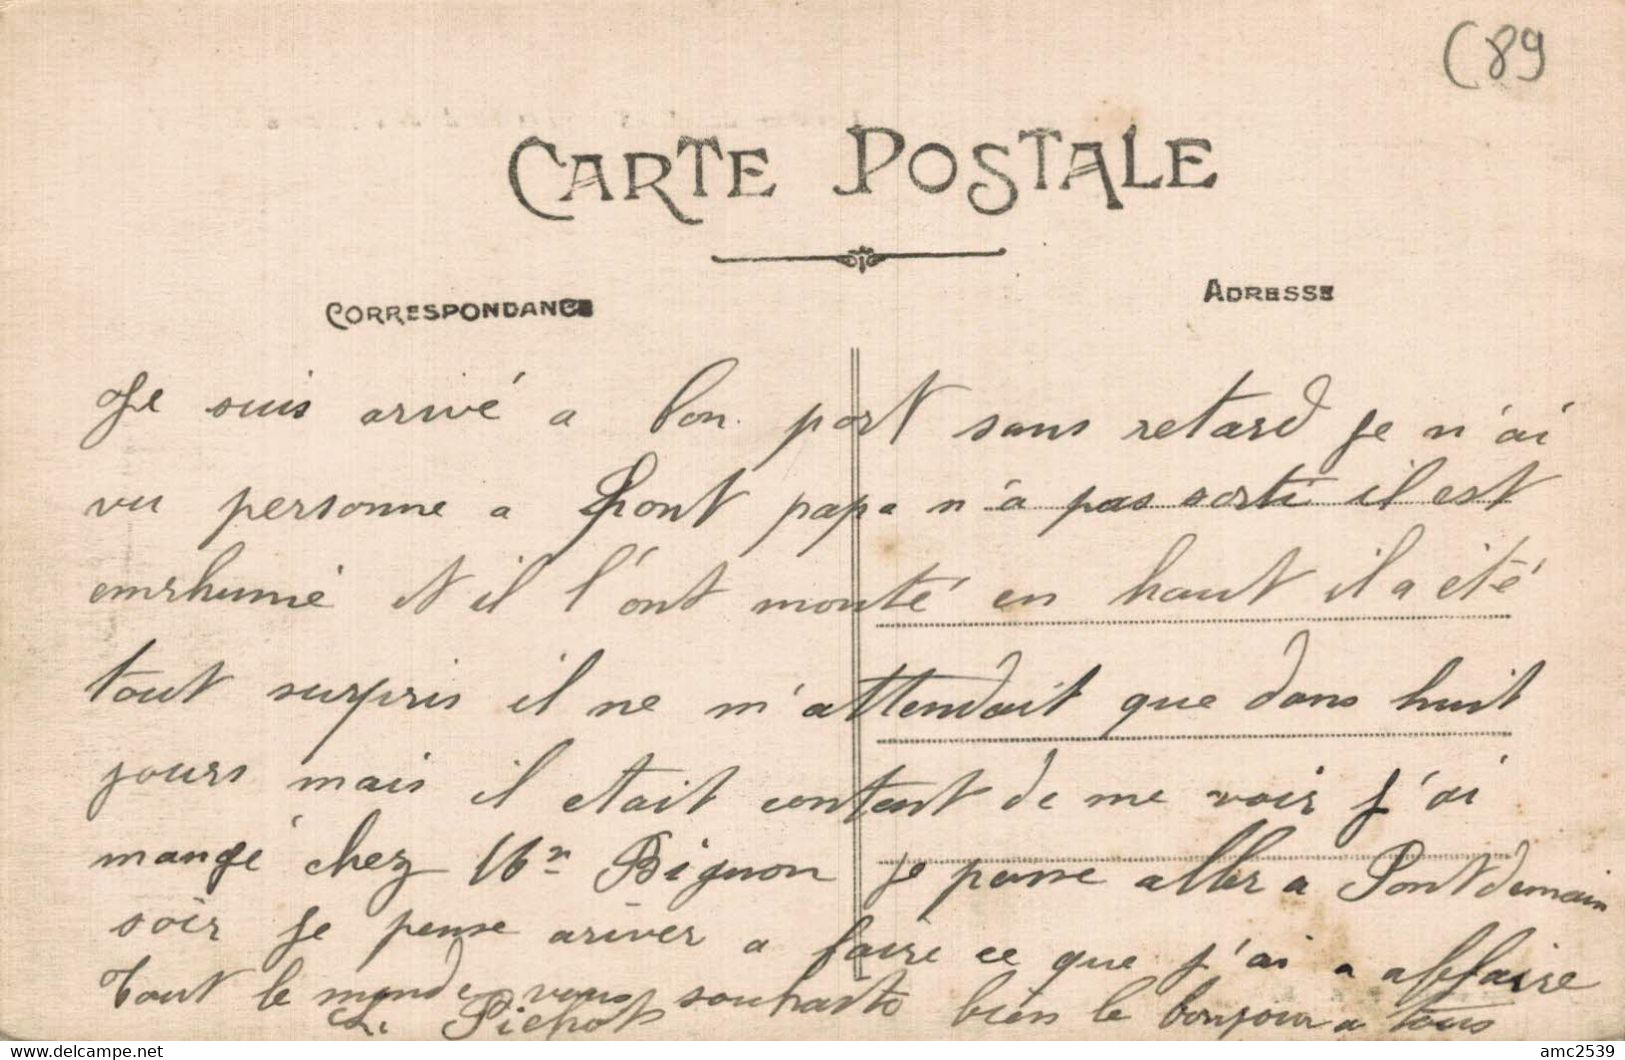 (89
CARTE POSTALE
CORRESPONDANCE
ADRESSE
Je suis arivé a bon port sans retard je n'ai
vu personne a Pont papa n'a pas sorti il est
enrhumé et il l'ont monté en haut il a été
tout surpris il ne m'attendait que dans huit
jours mais il etait content de me voir j'ai
mangé chez Mr Bignon je pense aller a Pont demain
soir je pense ariver a faire ce que j'ai a affaire
Tout le monde vous souhaite bien le bonjour a tous
L. Pichot
www.delcampe.net
amc2539